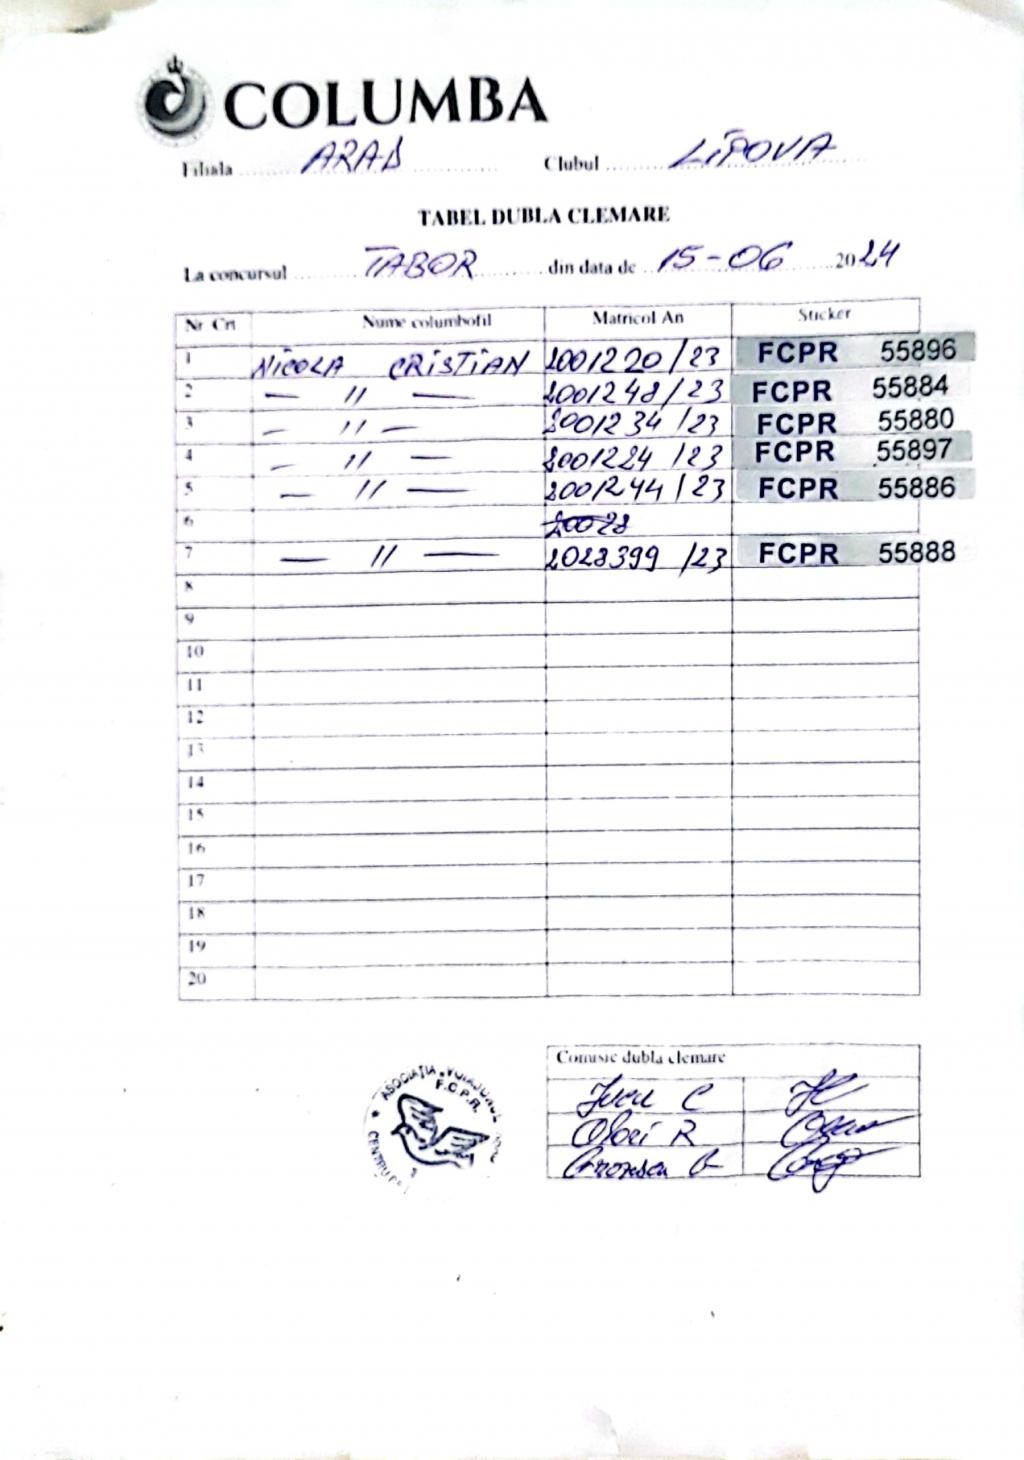 COLUMBA
Filiala ARAD Clubul LIPOVA
TABEL DUBLA CLEMARE
La concursul TABOR din data de 15-06 2024
Nr Crt Nume columbofil Matricol An Sticker
1 NICOLA CRISTIAN 2001220/23 FCPR 55896
2 — 〃 — 2001248/23 FCPR 55884
3 — 〃 — 2001234/23 FCPR 55880
4 — 〃 — 2001224/23 FCPR 55897
5 — 〃 — 2001244/23 FCPR 55886
6 20028
7 — 〃 — 2028399/23 FCPR 55888
8
9
10
11
12
13
14
15
16
17
18
19
20
Comisie dubla clemare
ASOCIAȚIA
F.C.P.R.